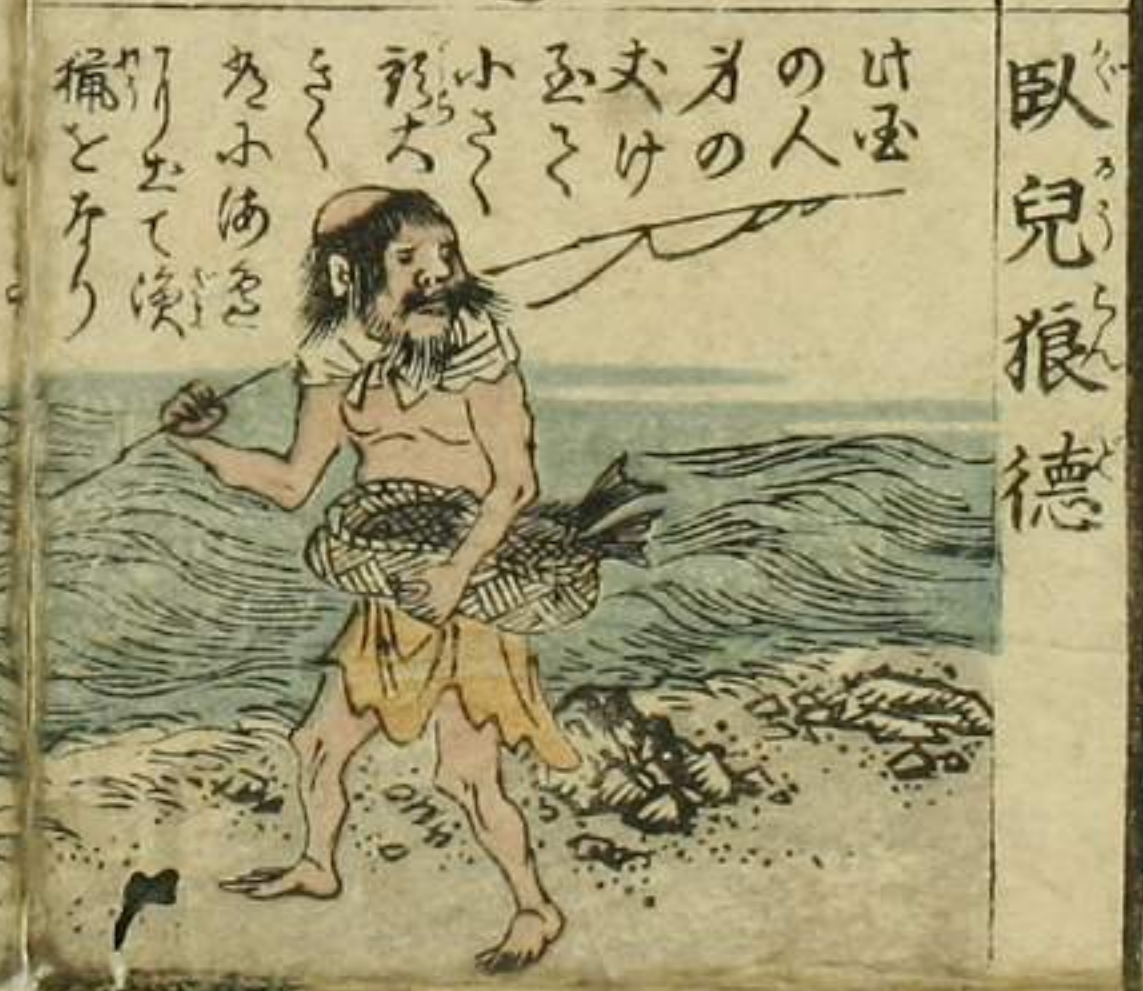 臥兒狼德
此国
の人
身の
丈け
至て
小さく
頭大
きく
常に海邊
出て漁
猟をな